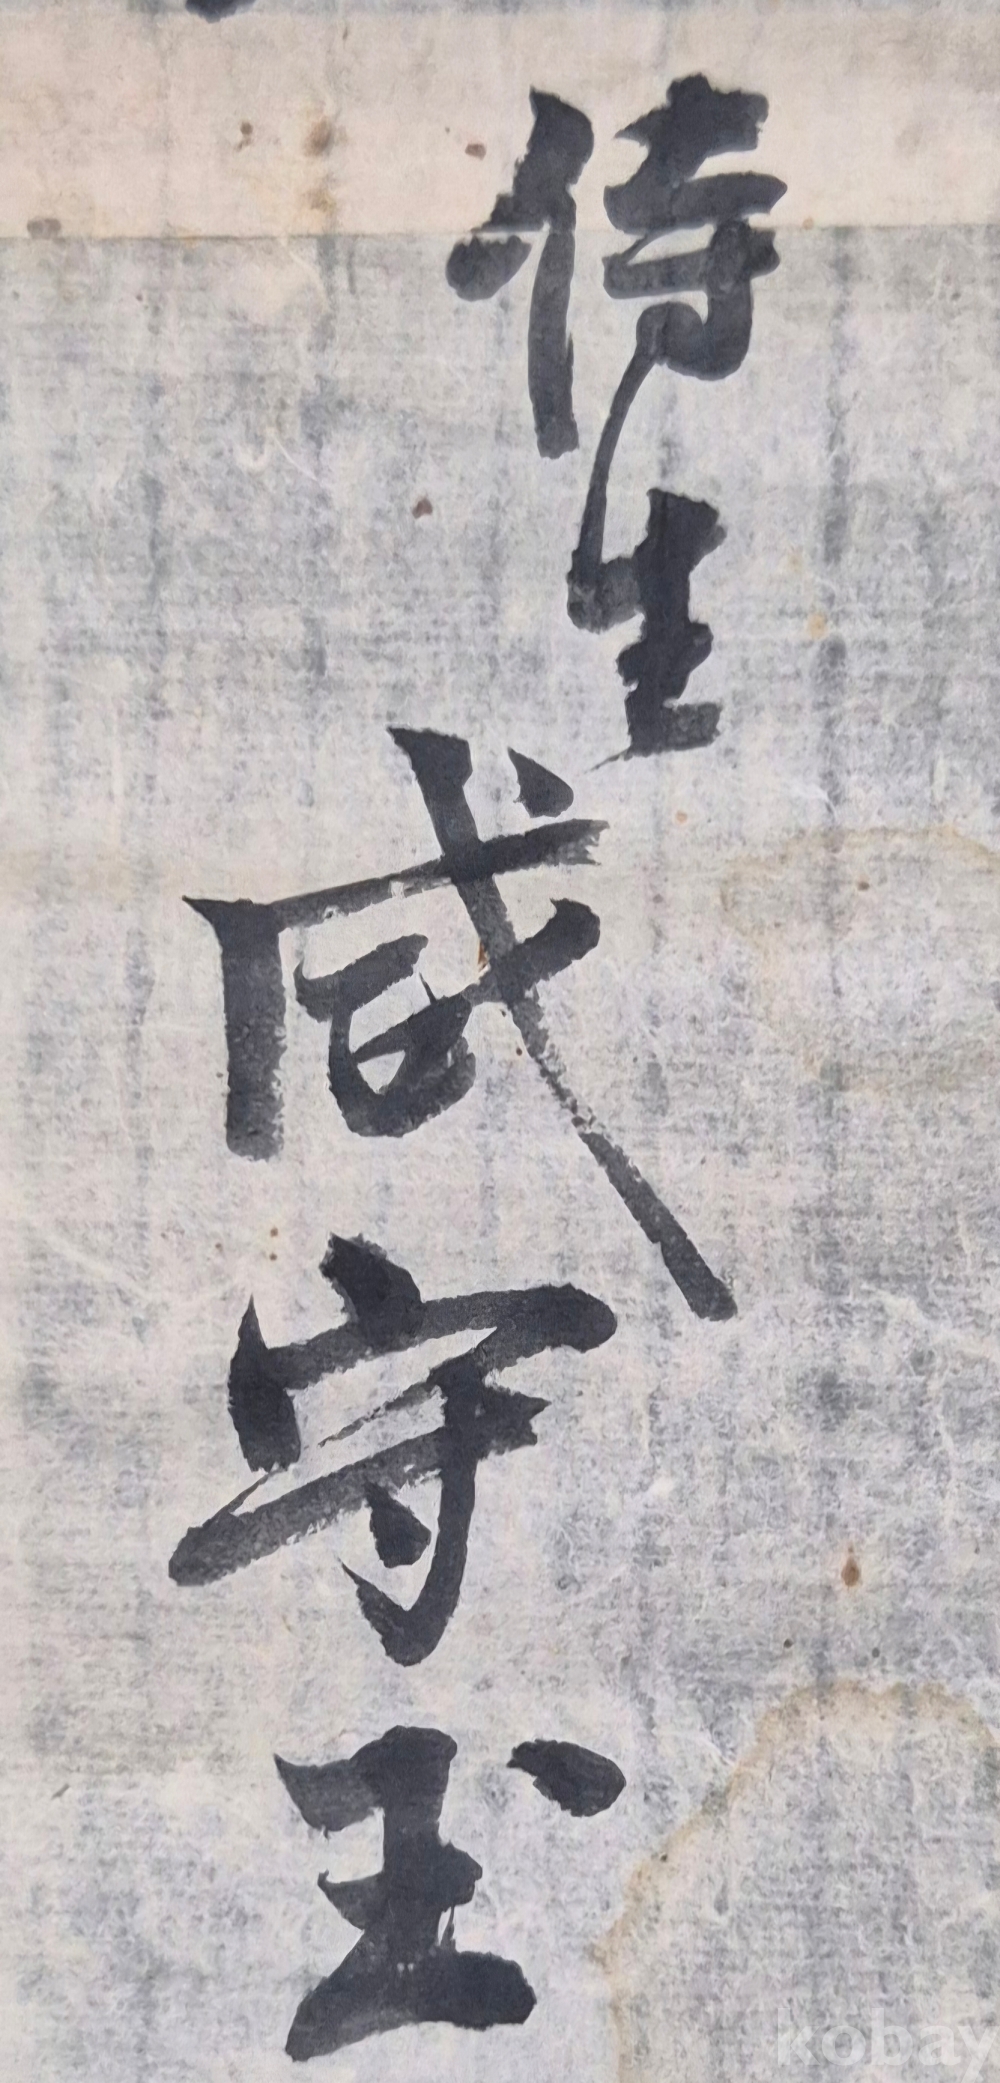 侍生咸守玉
kobay